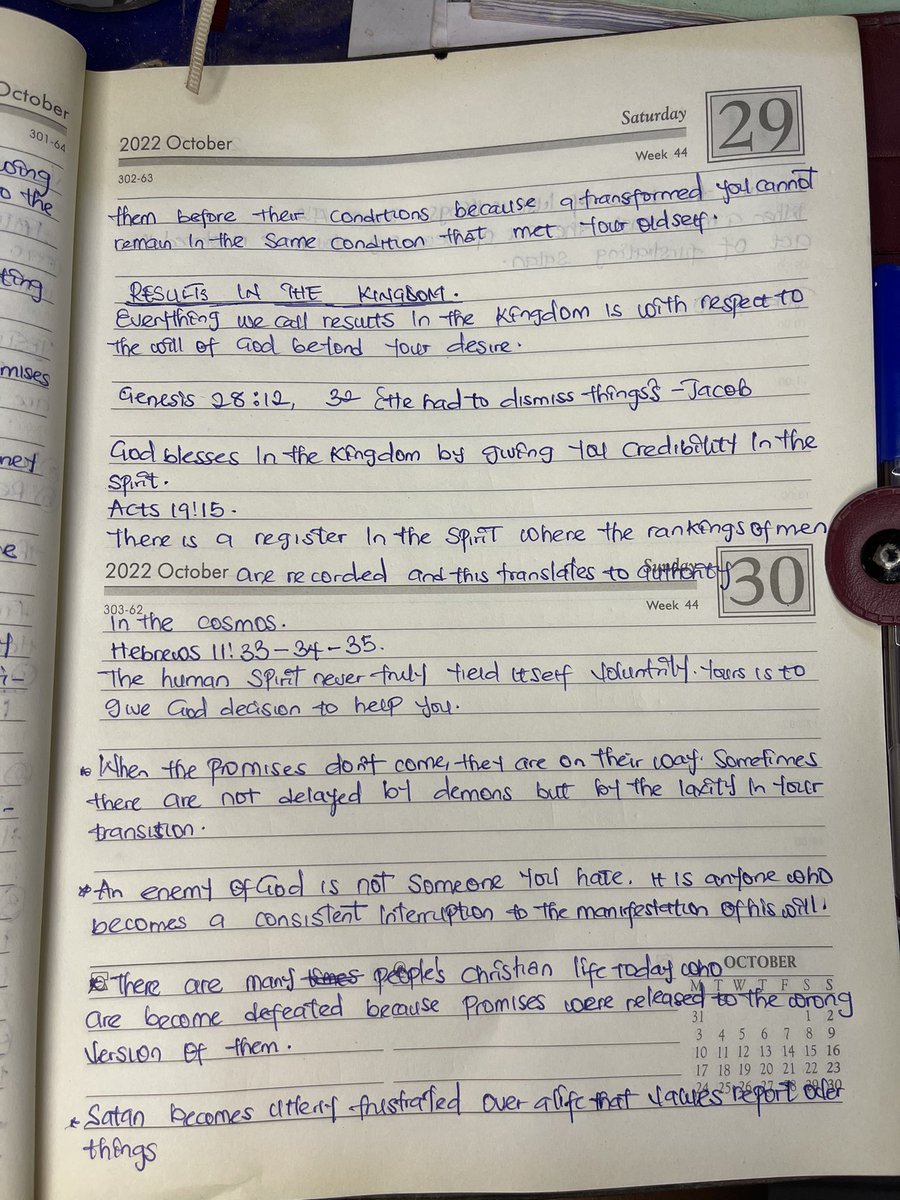 October
301-64
osing
o the
ting
mises
ney
e
Saturday
29
2022 October
Week 44
302-63
them before their conditions because a transformed you cannot
remain in the same condition that met your oldself.
RESULTS IN THE KINGDOM.
Everything we call results in the kingdom is with respect to
the will of God beyond your desire.
Genesis 28:12, 32 {He had to dismiss things} - Jacob
God blesses in the kingdom by giving you credibility in the
spirit.
Acts 19:15.
There is a register in the spirit where the rankings of men
Sunday
30
2022 October are recorded and this translates to authority
303-62
Week 44
in the cosmos.
Hebrews 11:33-34-35.
The human spirit never truly yield itself voluntrily. Yours is to
give God decision to help you.
* When the promises don't come, they are on their way. Sometimes
there are not delayed by demons but by the laxity in your
transition.
* An enemy of God is not someone you hate. It is anyone who
becomes a consistent interruption to the manifestation of his will.
There are many times people's christian life today who
are become defeated because promises were released to the wrong
version of them.
OCTOBER
M T W T F S S
31 1 2
3 4 5 6 7 8 9
10 11 12 13 14 15 16
17 18 19 20 21 22 23
24 25 26 27 28 29 30
* Satan becomes utterly frustrated over a life that values report
things